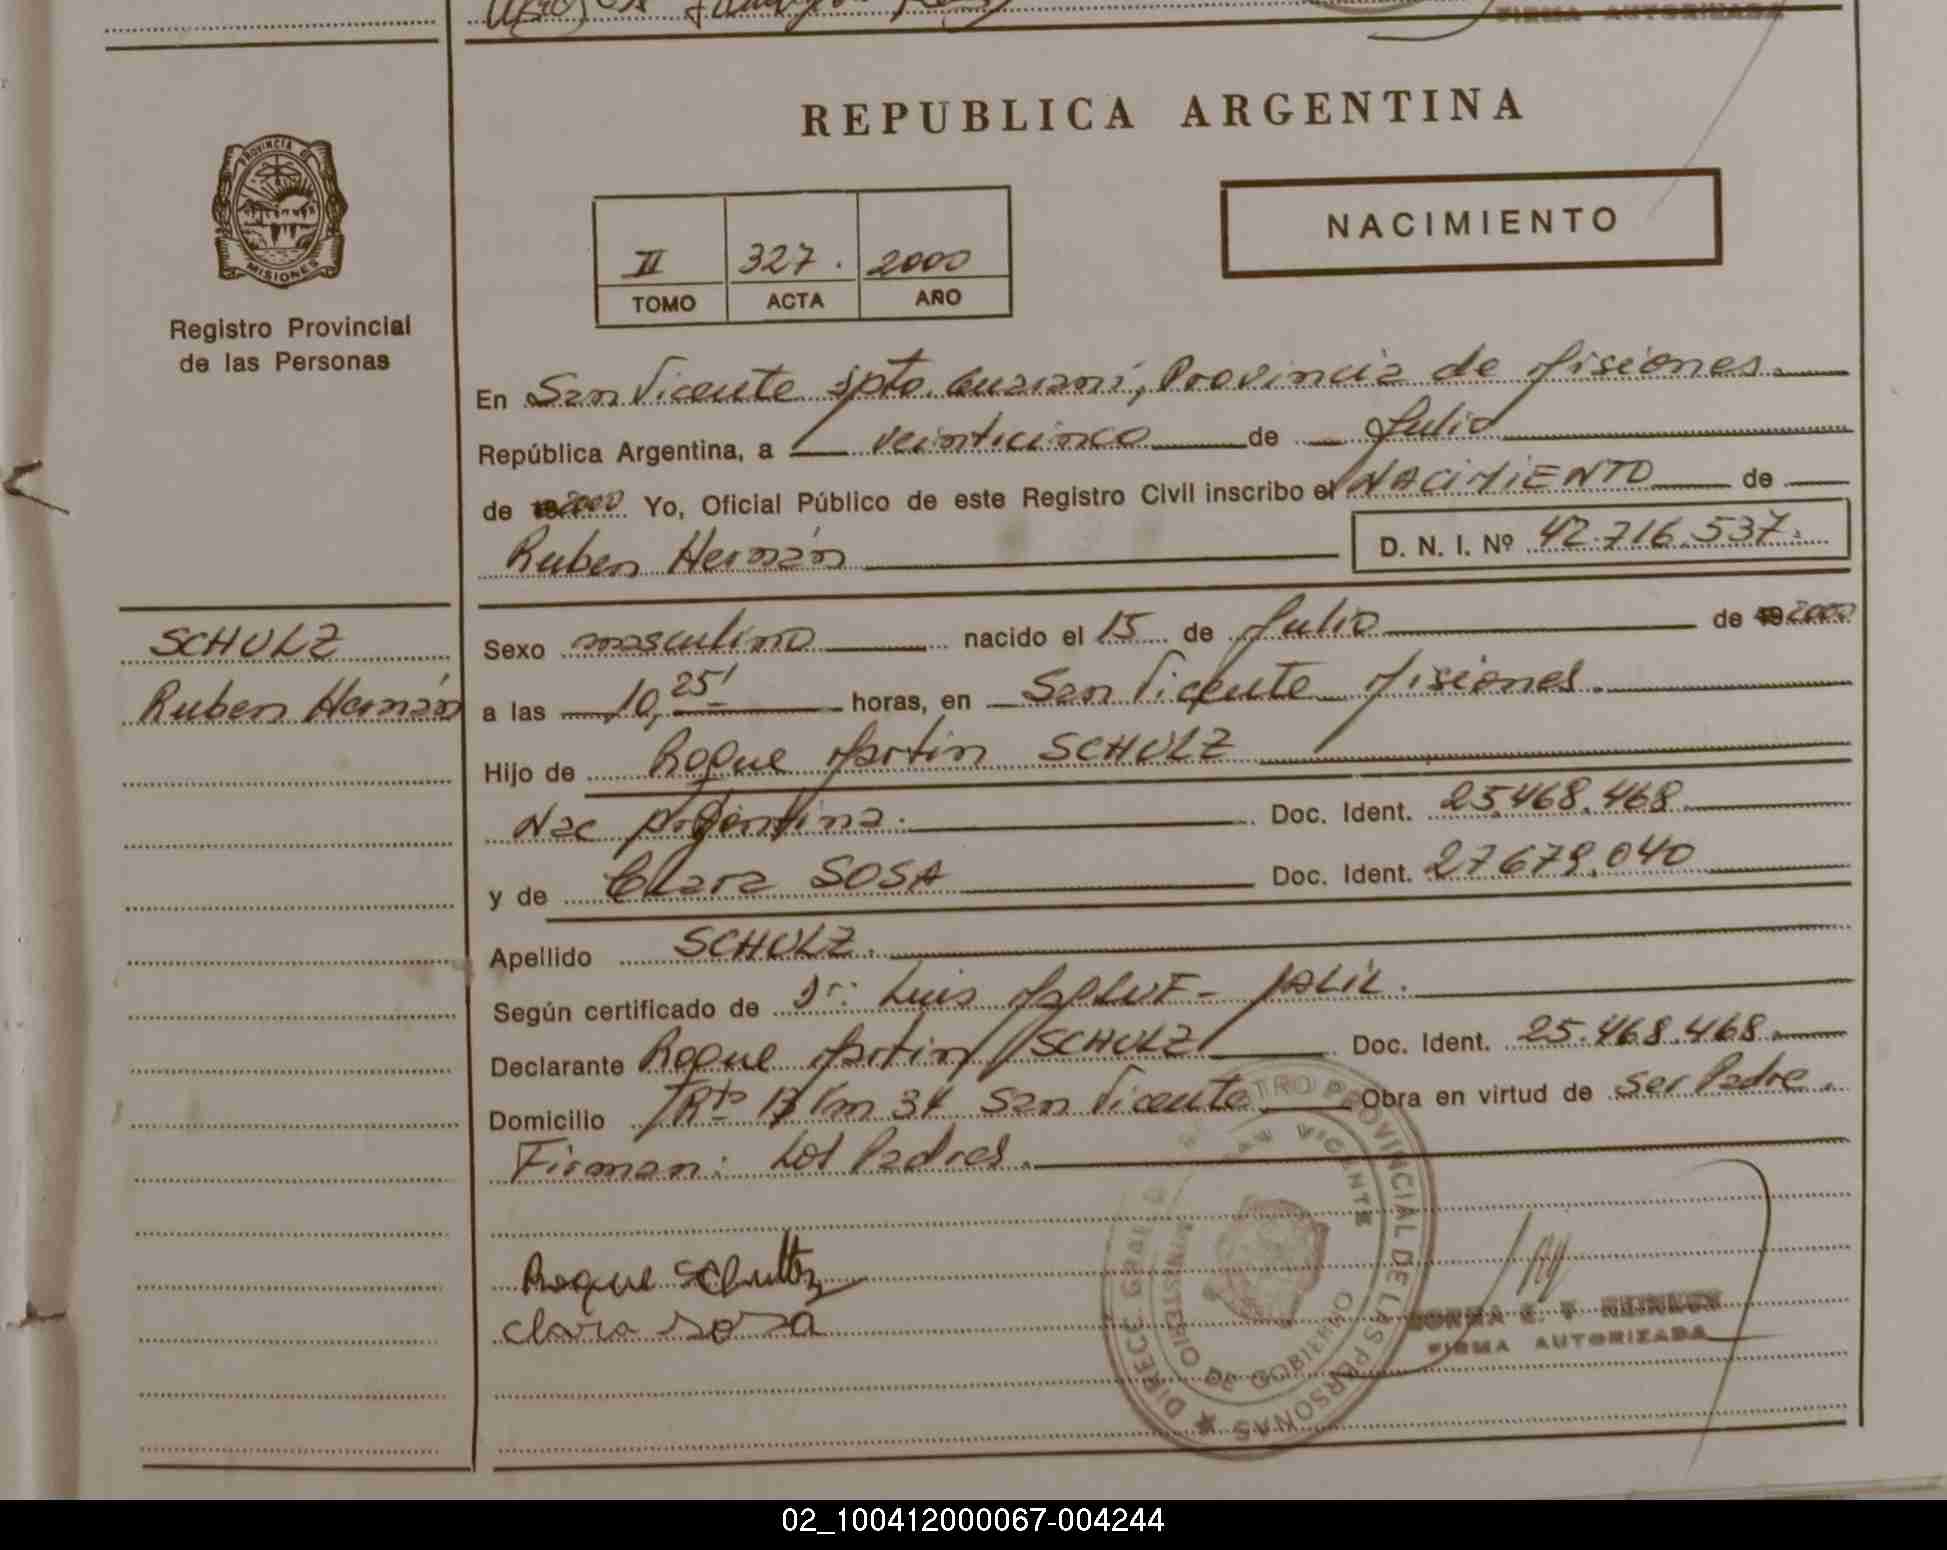 FIRMA AUTORIZADA
REPUBLICA ARGENTINA
PROVINCIA DE
MISIONES
Registro Provincial
de las Personas
NACIMIENTO
II 327. 2000
TOMO ACTA AÑO
En San Vicente Dpto. Guaraní, Provincia de Misiones.
República Argentina, a veinticinco de Julio
de 2000 Yo, Oficial Público de este Registro Civil inscribo el NACIMIENTO de
Ruben Hernán D. N. I. Nº 42.716.537.
SCHULZ
Ruben Hernán
Sexo masculino nacido el 15 de Julio de 19 2000
a las 10,25' horas, en San Vicente Misiones.
Hijo de Roque Martin SCHULZ
Nac Argentina. Doc. Ident. 25.468.468
y de Clara SOSA Doc. Ident. 27.679.040
Apellido SCHULZ.
Según certificado de Dr: Luis JALIL.
Declarante Roque Martin SCHULZ Doc. Ident. 25.468.468.
Domicilio Rta 13 Km 34 San Vicente Obra en virtud de ser Padre.
Firman: Los Padres.
Roque Schultz
Clara sosa
DIRECC GRAL REGISTRO PROVINCIAL DE LAS PERSONAS
SAN VICENTE
MINISTERIO DE GOBIERNO
FIRMA AUTORIZADA
02_100412000067-004244